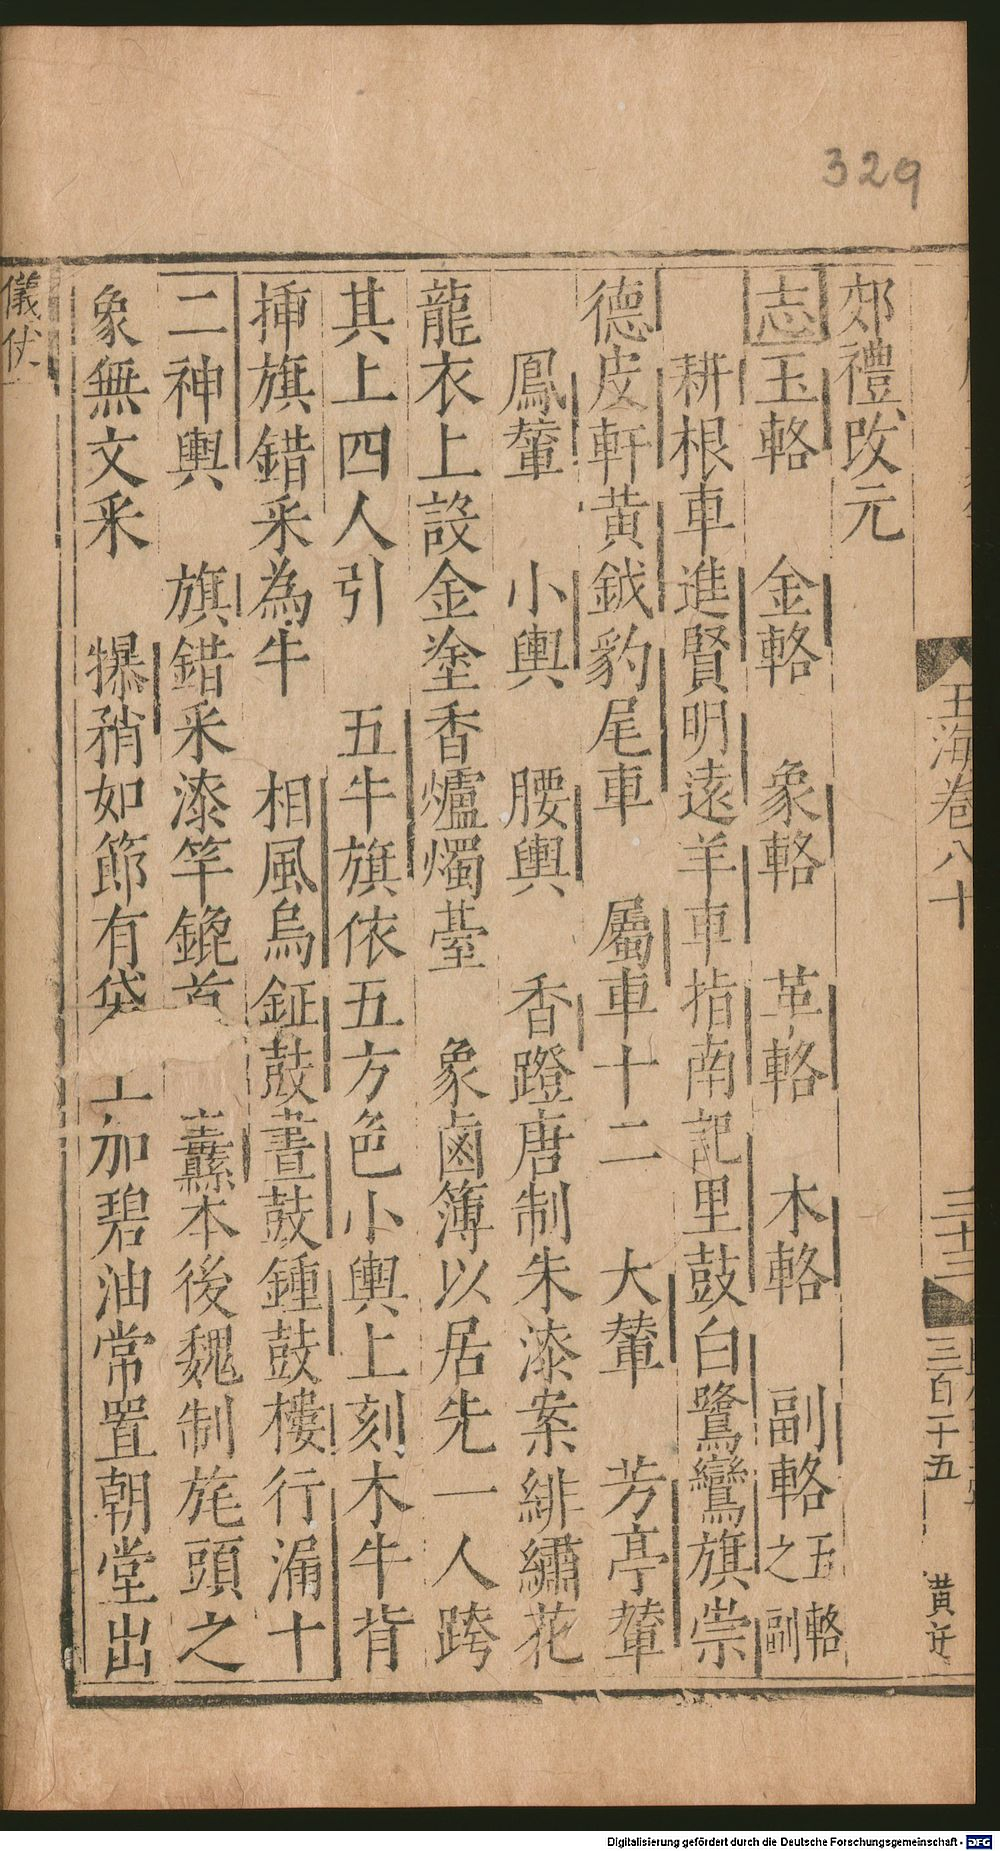 329
玉海卷八十
三十三
三百二十五
黃
郊禮改元
志玉輅 金輅 象輅 革輅 木輅 副輅五輅之副
耕根車進賢明遠羊車指南記里鼓白鷺鸞旗崇
德皮軒黃鉞豹尾車 屬車十二 大輦 芳亭輦
鳳輦 小輿 腰輿 香蹬唐制朱漆案緋繡花
龍衣上設金塗香爐燭臺 象鹵簿以居先一人跨
其上四人引 五牛旗依五方色小輿上刻木牛背
揷旗錯采為牛 相風烏鉦鼓晝鼓鍾鼓樓行漏十
二神輿 旗錯采漆竿錕首 纛本後魏制旄頭之
象無文采 犦矟如節有袋 上加碧油常置朝堂出
儀仗
Digitalisierung gefördert durch die Deutsche Forschungsgemeinschaft - DFG